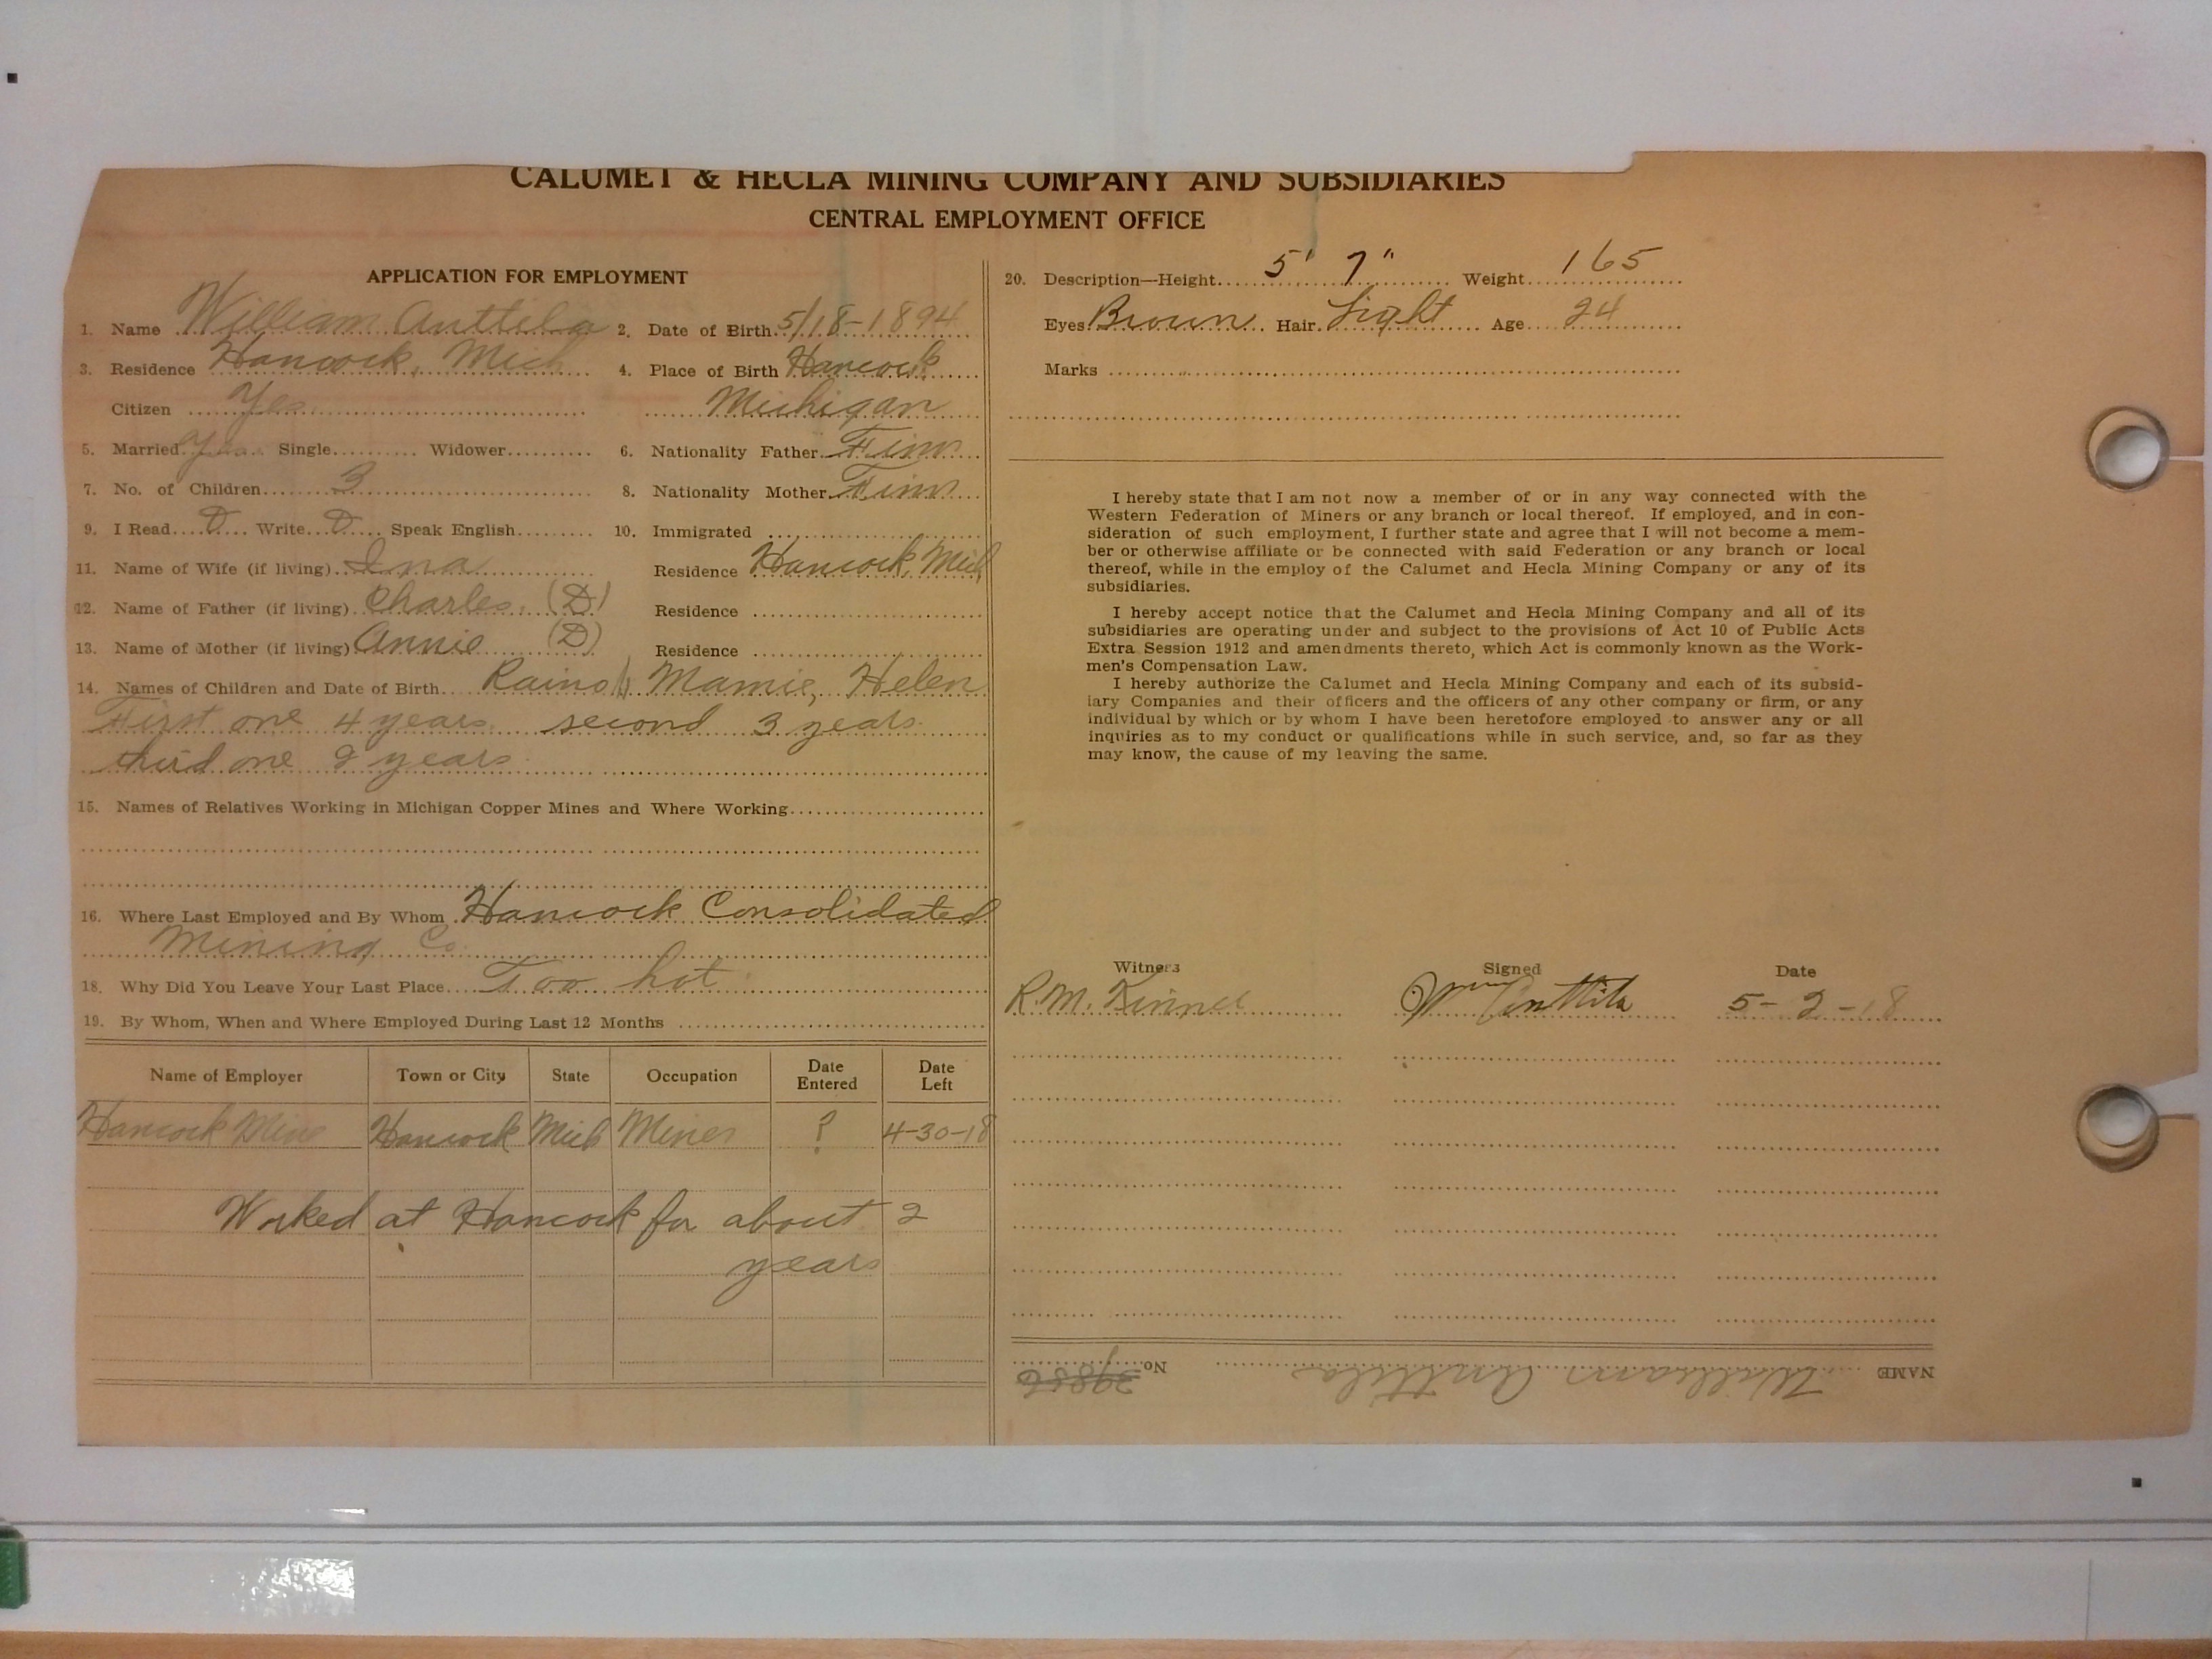 CALUMET & HECLA MINING COMPANY AND SUBSIDIARIES
CENTRAL EMPLOYMENT OFFICE
APPLICATION FOR EMPLOYMENT
1. Name William Anttila 2. Date of Birth 5/18-1894
3. Residence Hancock, Mich 4. Place of Birth Hancock
Citizen Yes Michigan
5. Married Yes Single Widower 6. Nationality Father Finn
7. No. of Children 3 8. Nationality Mother Finn
9. I Read Write Speak English 10. Immigrated
11. Name of Wife (if living) Ina Residence Hancock, Mich
12. Name of Father (if living) Charles (D) Residence
13. Name of Mother (if living) Annie (D) Residence
14. Names of Children and Date of Birth Raino Mamie, Helen
First one 4 years second 3 years
third one 2 years
15. Names of Relatives Working in Michigan Copper Mines and Where Working
16. Where Last Employed and By Whom Hancock Consolidated
Mining Co.
18. Why Did You Leave Your Last Place Too hot
19. By Whom, When and Where Employed During Last 12 Months
Name of Employer Town or City State Occupation Date Entered Date Left
Hancock Mine Hancock Mich Miner ? 4-30-18
Worked at Hancock for about 2
years
20. Description—Height 5' 7" Weight 165
Eyes Brown Hair Light Age 24
Marks
I hereby state that I am not now a member of or in any way connected with the
Western Federation of Miners or any branch or local thereof. If employed, and in con-
sideration of such employment, I further state and agree that I will not become a mem-
ber or otherwise affiliate or be connected with said Federation or any branch or local
thereof, while in the employ of the Calumet and Hecla Mining Company or any of its
subsidiaries.
I hereby accept notice that the Calumet and Hecla Mining Company and all of its
subsidiaries are operating under and subject to the provisions of Act 10 of Public Acts
Extra Session 1912 and amendments thereto, which Act is commonly known as the Work-
men's Compensation Law.
I hereby authorize the Calumet and Hecla Mining Company and each of its subsid-
iary Companies and their officers and the officers of any other company or firm, or any
individual by which or by whom I have been heretofore employed to answer any or all
inquiries as to my conduct or qualifications while in such service, and, so far as they
may know, the cause of my leaving the same.
Witness Signed Date
R. M. Wm Anttila 5-2-18
NAME William Anttila No.